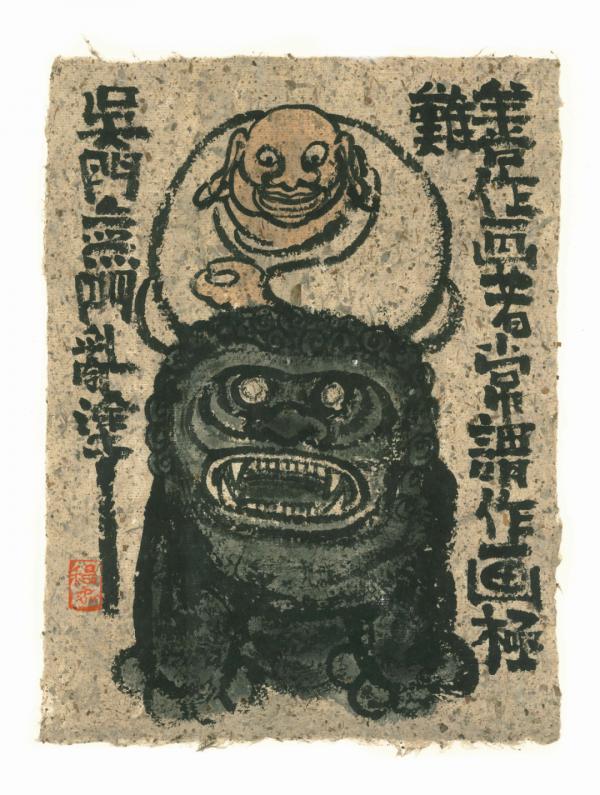 善作画者常謂作画極
難
吳門無明亂塗